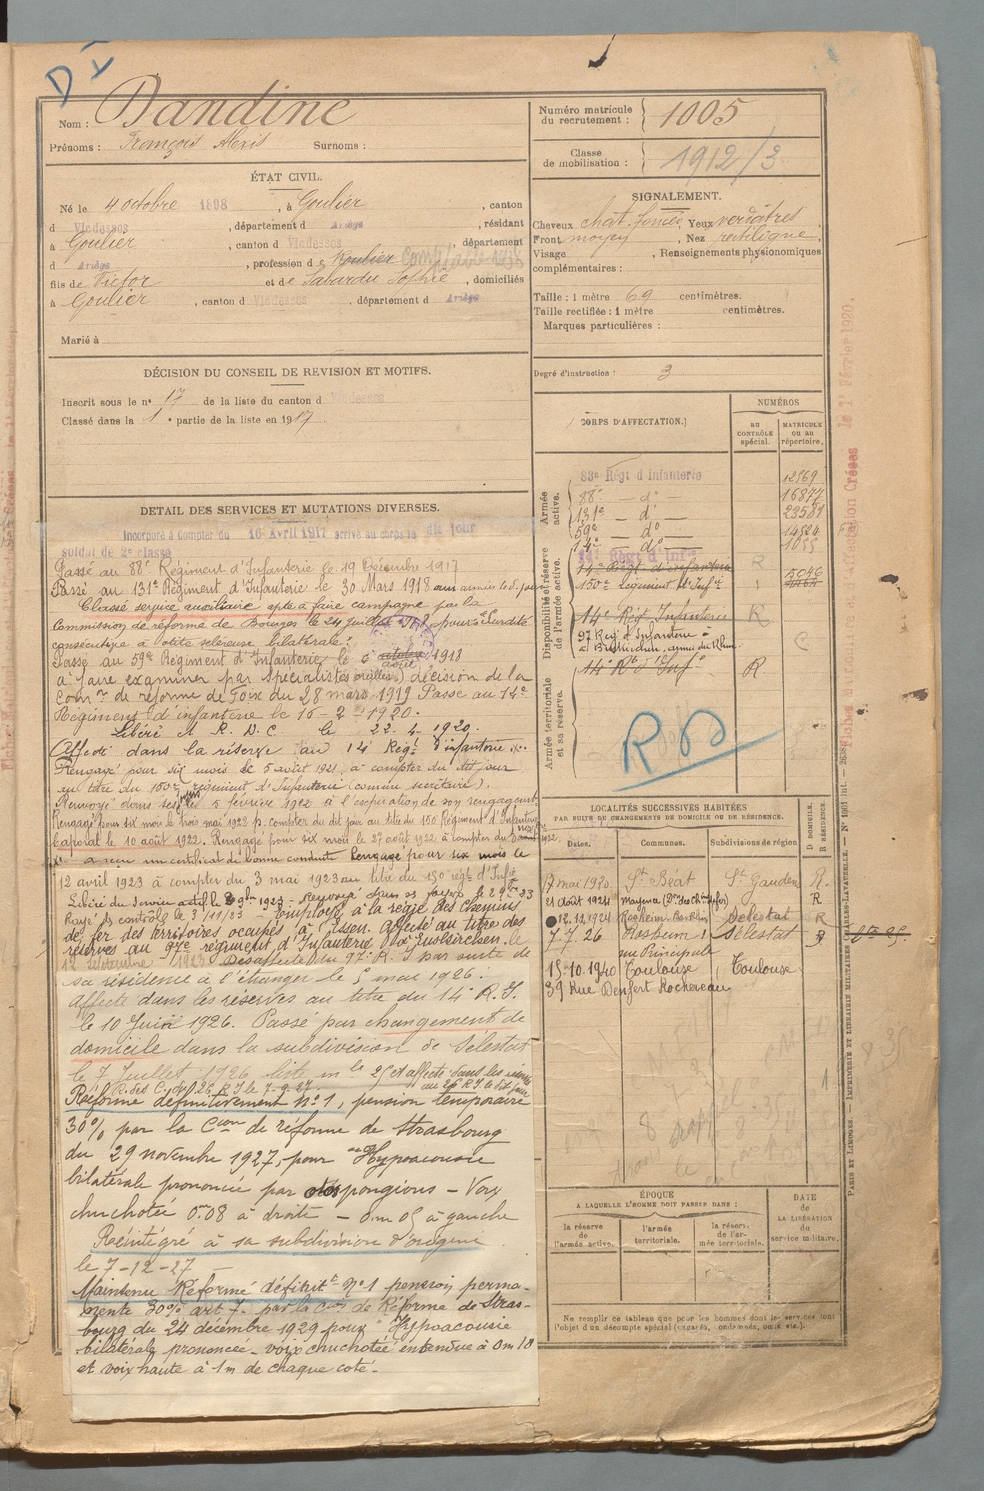 D Y
Nom : Dandine
Prénoms : François Alexis Surnoms :
ÉTAT CIVIL.
Né le 4 octobre 1898, à Goulier, canton
d Vicdessos, département d Ariège, résidant
à Goulier, canton d Vicdessos, département
d Ariège, profession d
fils de Victor et de Sophie, domiciliés
à Goulier, canton d Vicdessos, département d Ariège
Marié à
DÉCISION DU CONSEIL DE REVISION ET MOTIFS.
Inscrit sous le nº 17 de la liste du canton d Vicdessos
Classé dans la 1e partie de la liste en 1917.
DETAIL DES SERVICES ET MUTATIONS DIVERSES.
Incorporé à Compter du 16 Avril 1917 arrivé au corps le dit jour
soldat de 2e classe
Passé au 88e Régiment d'Infanterie le 19 Décembre 1917
Passé au 131e Régiment d'Infanterie le 30 Mars 1918
Classé service auxiliaire apte à faire campagne par la
Commission de réforme de Bourges le 24 juillet 1918 pour "Surdité
consécutive à otite scléreuse bilatérale".
Passé au 59e Régiment d'Infanterie le 1918
à faire examiner par spécialistes (oreilles) décision de la
Comon de réforme de Foix du 28 mars 1919 Passé au 14e
Régiment d'infanterie le 16-2-1920.
Libéré A R. D. C le 22-4-1920.
Affecté dans la réserve au 14 Régt d'infanterie
Rengagé pour six mois le 5 août 1921 à compter du dit jour
au titre du 150e régiment d'Infanterie (commis secrétaire).
Renvoyé dans ses foyers le 5 février 1922 à l'expiration de son rengagement
Rengagé pour six mois le trois mai 1922 p. compter du dit jour au titre du 150 Régiment d'Infanterie
Caporal le 10 août 1922. Rengagé pour six mois le 27 août 1922 à compter du 3 nov. 1922.
a reçu un certificat de bonne conduite Rengagé pour six mois le
12 avril 1923 à compter du 3 mai 1923 au titre du 150 régt d'Infie
Libéré du Service actif le 1923 - Renvoyé dans ses foyers le 23
Rayé des contrôles le 3/11/23 - Employé à la régie des Chemins
de fer des territoires occupés à Essen. Affecté au titre des
réserves au 97e régiment d'Infanterie le
12 Septembre 1923 Désaffecté du 97e R. I par suite de
sa résidence à l'étranger le 5 mai 1926.
Affecté dans les réserves au titre du 14e R. I.
le 10 Juin 1926. Passé par changement de
domicile dans la subdivision de Sélestat
le 7 Juillet 1926 liste mle 25 et affecté dans les réserves
au 26 R I le dit jour
R. des C. du 26 R I le 7-9-27.
Réformé définitivement nº 1, pension temporaire
30% par la Cion de réforme de Strasbourg
du 29 novembre 1927, pour "Hypoacousie
bilatérale prononcée par otospongiose - Voix
chuchotée 0m08 à droite - 0m05 à gauche
Réintégré à sa subdivision d'origine
le 7-12-27 -
Maintenu Réformé définitt nº 1 pension perma-
nente 30% art 7. par la Con de Réforme de Stras-
bourg du 24 décembre 1929 pour "Hypoacousie
bilatérale prononcée - voix chuchotée entendue à 0m10
et voix haute à 1m de chaque coté.
Numéro matricule du recrutement : 1005
Classe de mobilisation : 1912/3
SIGNALEMENT.
Cheveux chat. foncés, Yeux verdâtres
Front moyen, Nez rectiligne
Visage , Renseignements physionomiques
complémentaires :
Taille : 1 mètre 69 centimètres.
Taille rectifiée : 1 mètre centimètres.
Marques particulières :
Degré d'instruction : 3
CORPS D'AFFECTATION.
NUMÉROS
AU CONTRÔLE spécial.
MATRICULE OU AU répertoire.
Armée active.
83e Régt d'Infanterie 12569
88e - do - 16877
131e - do - 23581
59e - do 14524
14e - do 1055
Disponibilité et réserve de l'armée active.
14e Régt d'Infie
14e Régt d'infanterie R
150e Régiment d'Infie 5646
14e Régt Infanterie R
97 Régt d'Infanterie C
14e Rt d'Infie R
Armée territoriale et sa réserve.
LOCALITÉS SUCCESSIVES HABITÉES
PAR SUITE DE CHANGEMENTS DE DOMICILE OU DE RÉSIDENCE.
Dates. Communes. Subdivisions de région
D DOMICILE. R RÉSIDENCE.
17 mai 1920 St Béat St Gaudens R.
21 août 1924 R
12.12.1924 Rosheim Sélestat R
7-7-26 Rosheim Sélestat
rue Principale
15-10-1940 Toulouse Toulouse
39 Rue Denfert Rochereau
ÉPOQUE
A LAQUELLE L'HOMME DOIT PASSER DANS :
la réserve de l'armée active.
l'armée territoriale.
la réserv. de l'armée territoriale.
DATE de LA LIBÉRATION du service militaire.
Ne remplir ce tableau que pour les hommes dont les services font
l'objet d'un décompte spécial (engagés, ordonnés, omis etc.)
PARIS ET LIMOGES. — IMPRIMERIE ET LIBRAIRIE MILITAIRES CHARLES-LAVAUZELLE.
Fiches Matricule et d'Affectation Créées le 1r Février 1920.